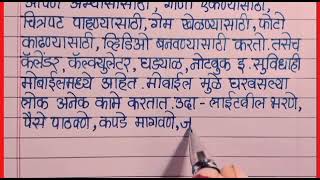 आपण अभ्यासासाठी, गाणी ऐकण्यासाठी,
चित्रपट पाहण्यासाठी, गेम खेळण्यासाठी, फोटो
काढण्यासाठी, व्हिडिओ बनवण्यासाठी करतो. तसेच
कॅलेंडर, कॅल्क्युलेटर, घड्याळ, नोटबुक इ. सुविधाही
मोबाईलमध्ये आहेत. मोबाईल मुळे घरबसल्या
लोक अनेक कामे करतात. उदा - लाईटबील भरणे,
पैसे पाठवणे, कपडे मागवणे, ज